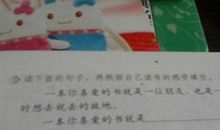 读下面的句子，再根据自己读书的感受填空。
一本你喜爱的书就是一位朋友，也是一
时想去就去的故地。
一本你喜爱的书就是